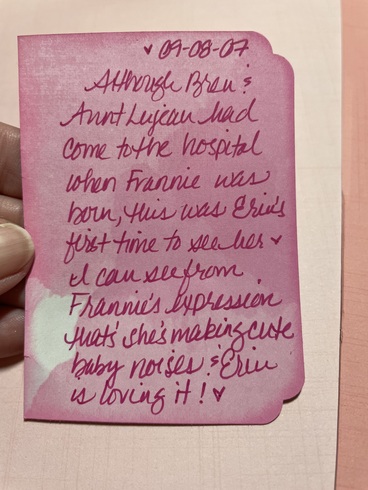 ♥ 09-08-07
Although Bran &
Aunt Lujean had
come to the hospital
when Frannie was
born, this was Erin's
first time to see her ♥
I can see from
Frannie's expression
that's she's making cute
baby noises & Erin
is loving it! ♥